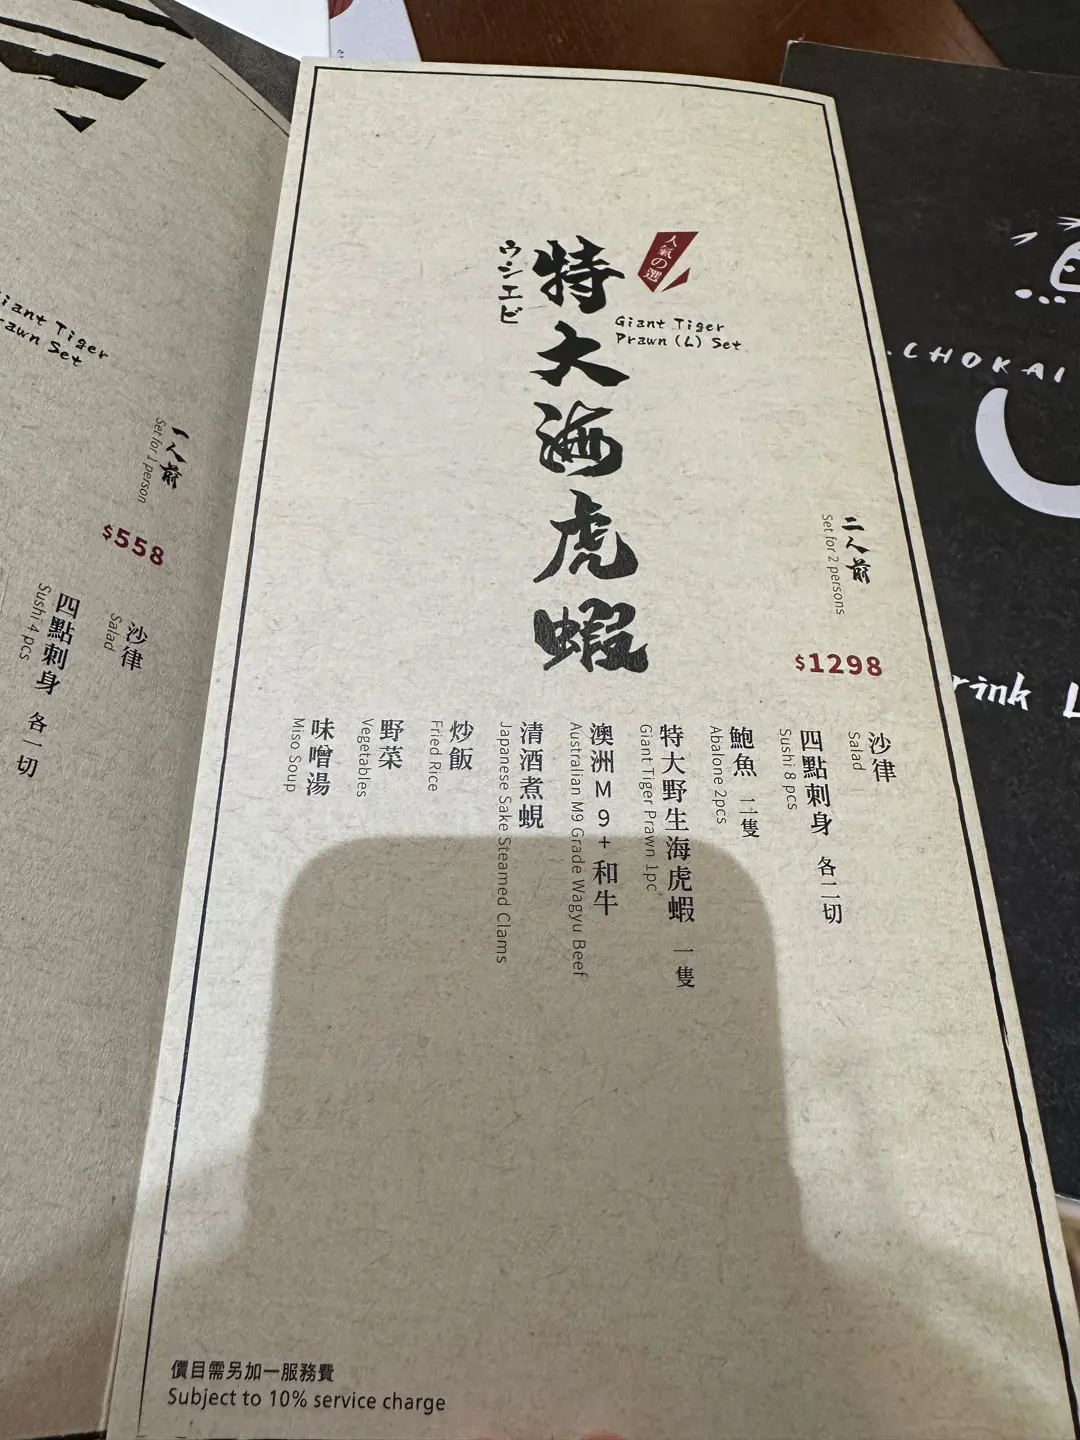 特大海虎蝦
ウシエビ
人氣の選
Giant Tiger
Prawn (L) Set
二人前
Set for 2 persons
$1298
沙律
Salad
四點刺身 各二切
Sushi 8 pcs
鮑魚 二隻
Abalone 2pcs
特大野生海虎蝦 一隻
Giant Tiger Prawn 1pc
澳洲M9+和牛
Australian M9 Grade Wagyu Beef
清酒煮蜆
Japanese Sake Steamed Clams
炒飯
Fried Rice
野菜
Vegetables
味噌湯
Miso Soup
價目需另加一服務費
Subject to 10% service charge
iant Tiger
rawn Set
一人前
Set for 1 person
$558
沙律
Salad
四點刺身 各一切
Sushi 4 pcs
CHOKAI
rink L